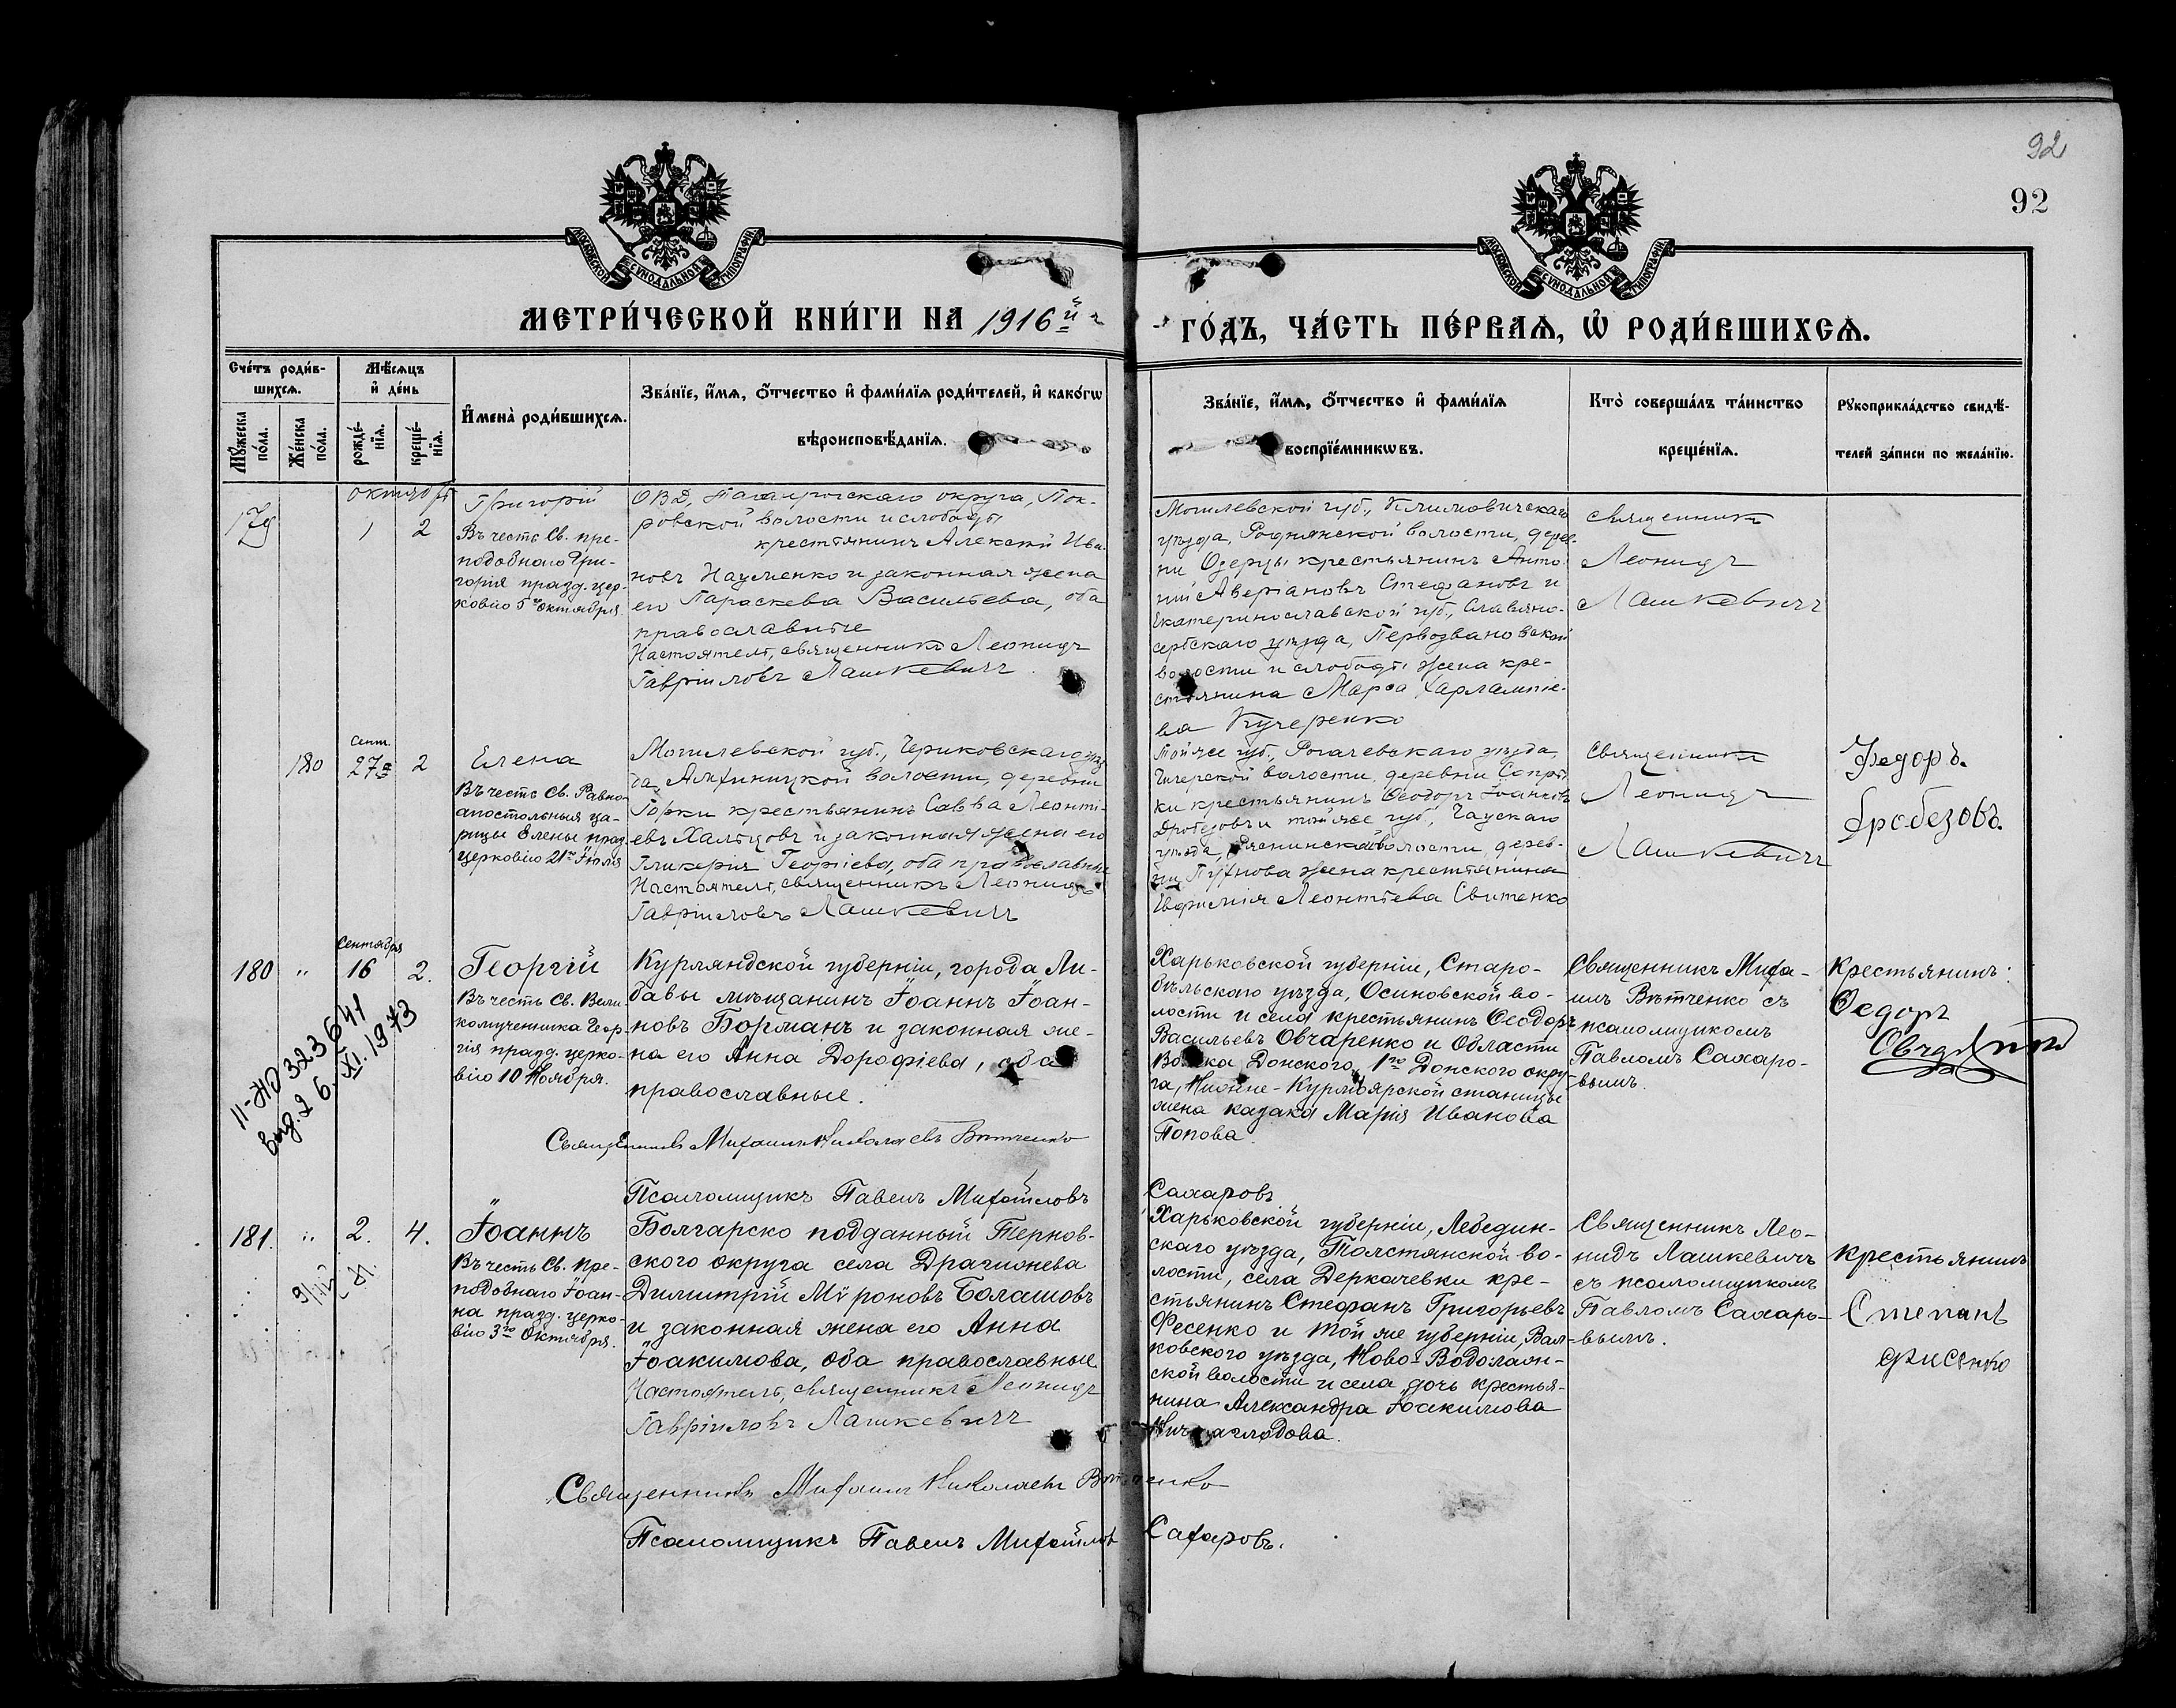 92
92
МОСКОВСКОЙ СѴНОДАЛЬНОЙ ТИПОГРАФІИ
МОСКОВСКОЙ СѴНОДАЛЬНОЙ ТИПОГРАФІИ
МЕТРИ́ЧЕСКОЙ КНИ́ГИ НА 1916й г
ГО́ДЪ, ЧА́СТЬ ПЕ́РВАѦ, Ѡ҆ РОДИ́ВШИХСѦ.
Сче́тъ роди́в-
шихсѧ.
Мꙋ́жеска по́ла.
Же́нска по́ла.
Мѣ́сѧцъ
и҆ де́нь
рожде́-
нїѧ.
креще́-
нїѧ.
И҆мена̀ роди́вшихсѧ.
Зва́нїе, и҆́мѧ, ѻ҆́тчество и҆ фами́лїѧ роди́телей, и҆ како́гѡ
вѣроисповѣ́данїѧ.
Зва́нїе, и҆́мѧ, ѻ҆́тчество и҆ фами́лїѧ
воспрїе́мникѡвъ.
Кто̀ соверша́лъ та́инство
креще́нїѧ.
Рꙋкоприкла́дство свидѣ́-
телей за́писи по жела́нїю.
179
октября
1 2
Григорій
Въ честь Св. пре-
подобнаго Гри-
горія празд. цер-
ковію 5го октября
ОВД, Таганрогскаго округа, Пок-
ровской волости и слободы
крестьянинъ Алексѣй Ива-
новъ Науменко и законная жена
его Параскева Васильева, оба
православные
Настоятель, священникъ Леонидъ
Гавріиловъ Лашкевичъ
Могилевской губ., Климовичскаго
уѣзда, Роднянской волости, дерев-
ни Озерцы крестьянинъ Анто-
ній Аверіановъ Стефановъ и
Екатеринославской губ., Славяно-
сербскаго уѣзда, Первозвановской
волости и слободы жена кре-
стьянина Марѳа Харлампіе-
ва Кучеренко
священникъ
Леонидъ
Лашкевичъ
180
Сент.
27го 2
Елена
Въ честь Св. Равно-
апостольныя ца-
рицы Елены празд.
церковію 21го
Могилевской губ., Чериковскаго уѣз-
да, волости, деревни
Горки крестьянинъ Савва Леонті-
евъ Хальцовъ и законная жена его
Гликерія Георгіева, оба православные
Настоятель, священникъ Леонидъ
Гавріиловъ Лашкевичъ
Той же губ., Рогачевскаго уѣзда,
Чичерской волости, деревни
ки крестьянинъ Ѳеодоръ Іоанновъ
Дробезовъ и той же губ., Чаускаго
уѣзда, Рясницской волости, дерев-
ни жена крестьянина
Евфимія Леонтьева Свитенко
Священникъ
Леонидъ
Лашкевичъ
Федоръ.
Дробезовъ.
180 " Сентября
16 2.
Георгій
Въ честь Св. Вели-
комученника Геор-
гія празд. церко-
вію 10 Ноября.
Курляндской губерніи, города Ли-
бавы мѣщанинъ Іоаннъ Іоан-
новъ Борманъ и законная же-
на его Анна Дорофіева, оба
православные.
Харьковской губерніи, Старо-
бѣльскаго уѣзда, Осиновской во-
лости и села крестьянинъ Ѳеодоръ
Васильевъ Овчаренко и Области
Войска Донского, 1го Донского окру-
га, Нижне-Курмоярской станицы
жена казака Марія Иванова
Попова.
Священникъ Миха-
илъ Вѣтченко съ
псаломщикомъ
Павломъ Сахаро-
вымъ.
Крестьянинъ:
Ѳедоръ
11-ЖО 323641
выд. 26.XI.1973
Священникъ Михаилъ Николаевъ Вѣтченко
Псаломщикъ Павелъ Михайловъ Сахаровъ
181. " 2. 4.
Іоаннъ
Въ честь Св. Пре-
подобнаго Іоан-
на празд. церко-
вію 3го Октября.
Болгарско подданный Тернов-
ского округа села Драгижева
Димитрій Мѵроновъ Балашовъ
и законная жена его Анна
Іоакимова, оба православные
Настоятель, священникъ Леонидъ
Гавріиловъ Лашкевичъ
Харьковской губерніи, Лебедин-
скаго уѣзда, Толстянской во-
лости, села Деркачевки кре-
стьянинъ Стефанъ Григорьевъ
Фесенко и той же губерніи, Вал-
ковского уѣзда, Ново-Водолаж-
ской волости и села, дочь крестья-
нина Александра Іоакимова
Священникъ Лео-
нидъ Лашкевичъ
съ псаломщикомъ
Павломъ Сахаро-
вымъ.
крестьянинъ
Степанъ
Фисенко
Священникъ Михаилъ Николаевъ Вѣтченко
Псаломщикъ Павелъ Михайловъ Сахаровъ.